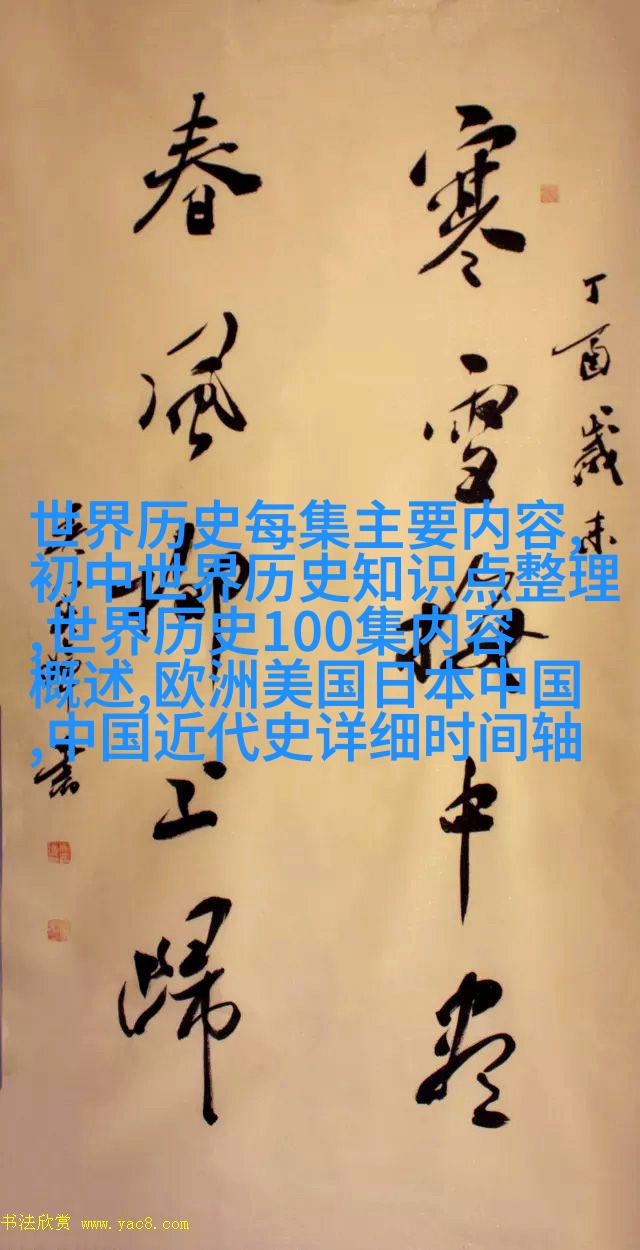 丁酉歲末
寒雪梅中尽
春風柳上歸
世界历史每集主要内容,
初中世界历史知识点整理
,世界历史100集内容
概述,欧洲美国日本中国
,中国近代史详细时间轴
书法欣赏 www.yac8.com